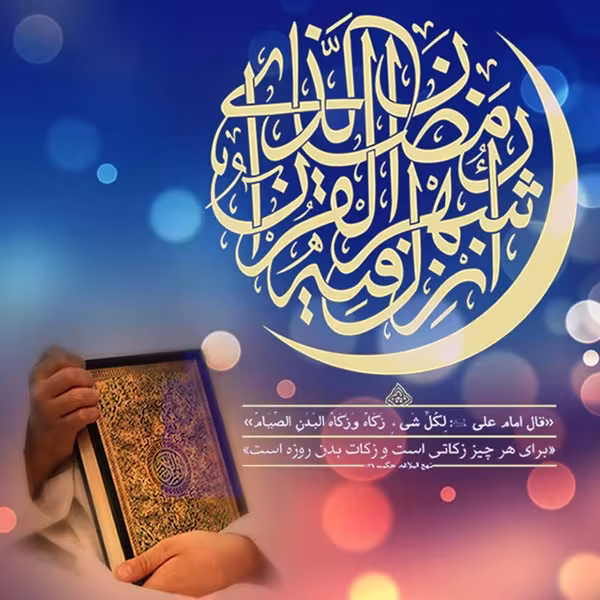 شهر رمضان الذی انزل فیه القرآن
«قال امام علی : لِکُلِّ شَیء زَکاةٌ وَ زَکاةُ البَدَنِ الصّیامُ»
«برای هر چیز زکاتی است و زکات بدن روزه است»
نهج البلاغه، حکمت ۱۳۶